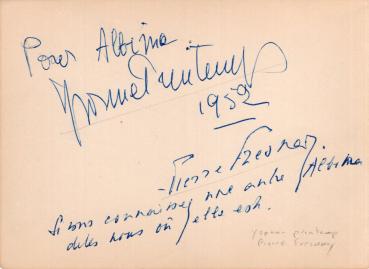 Pour Albima
Yvonne Printemps
1952
Pierre Fresnay
Si vous connaissez une autre Albima
dites nous où elle est.
Yvonne printemps
Pierre Fresnay